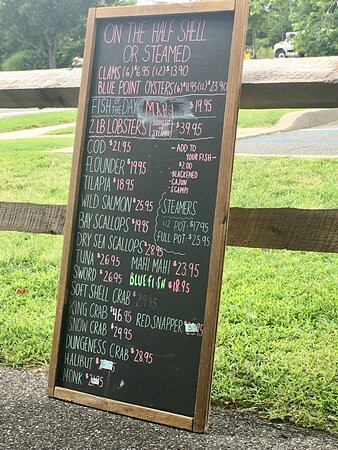 ON THE HALF SHELL
OR STEAMED
CLAMS (6) $6.95 (12) $13.90
BLUE POINT OYSTERS (6) $11.95 (12) $23.90
FISH OF THE DAY MAHI $19.95
2 LB LOBSTERS BROILED OR STEAMED $39.95
COD $21.95
FLOUNDER $19.95
TILAPIA $18.95
WILD SALMON $25.95
BAY SCALLOPS $19.95
DRY SEA SCALLOPS $28.95
- ADD TO
YOUR FISH -
$2.00
- BLACKENED
- CAJUN
- SCAMPI
STEAMERS
1/2 POT: $17.95
FULL POT: $25.95
TUNA $26.95 MAHI MAHI $23.95
SWORD $26.95 BLUEFISH $18.95
SOFT SHELL CRAB $29.95
KING CRAB $46.95 RED SNAPPER
SNOW CRAB $29.95
DUNGENESS CRAB $28.95
HALIBUT
MONK